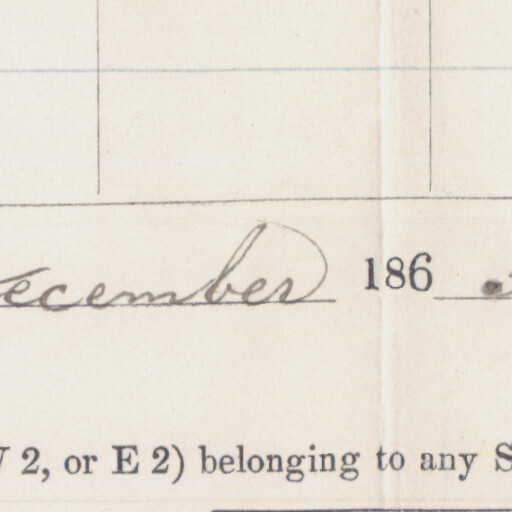 ecember 186
2, or E 2) belonging to any S